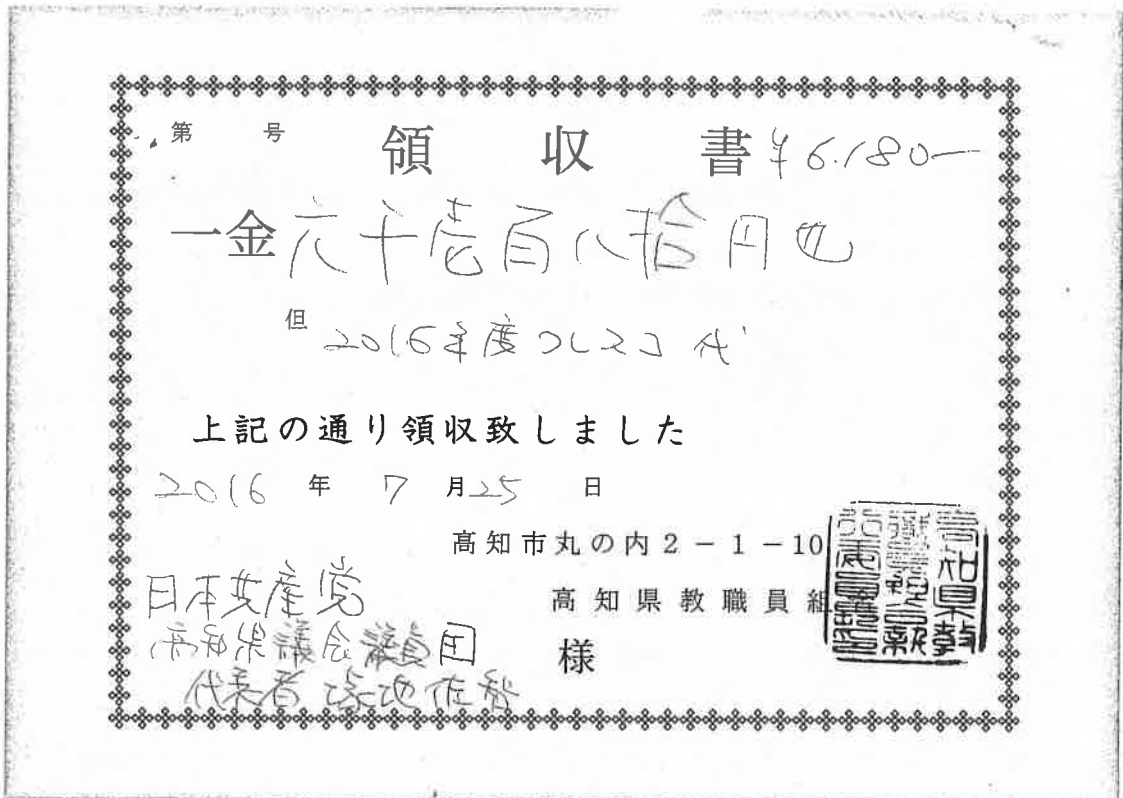 第 号 領 収 書 ¥6.180—
一金 六千壱百八拾円也
但 2016年度コレスコ代
上記の通り領収致しました
2016 年 7 月 25 日
高知市丸の内2-1-10
高知県教職員組
日本共産党
高知県議会議員団 様
代表者 塚地佐智